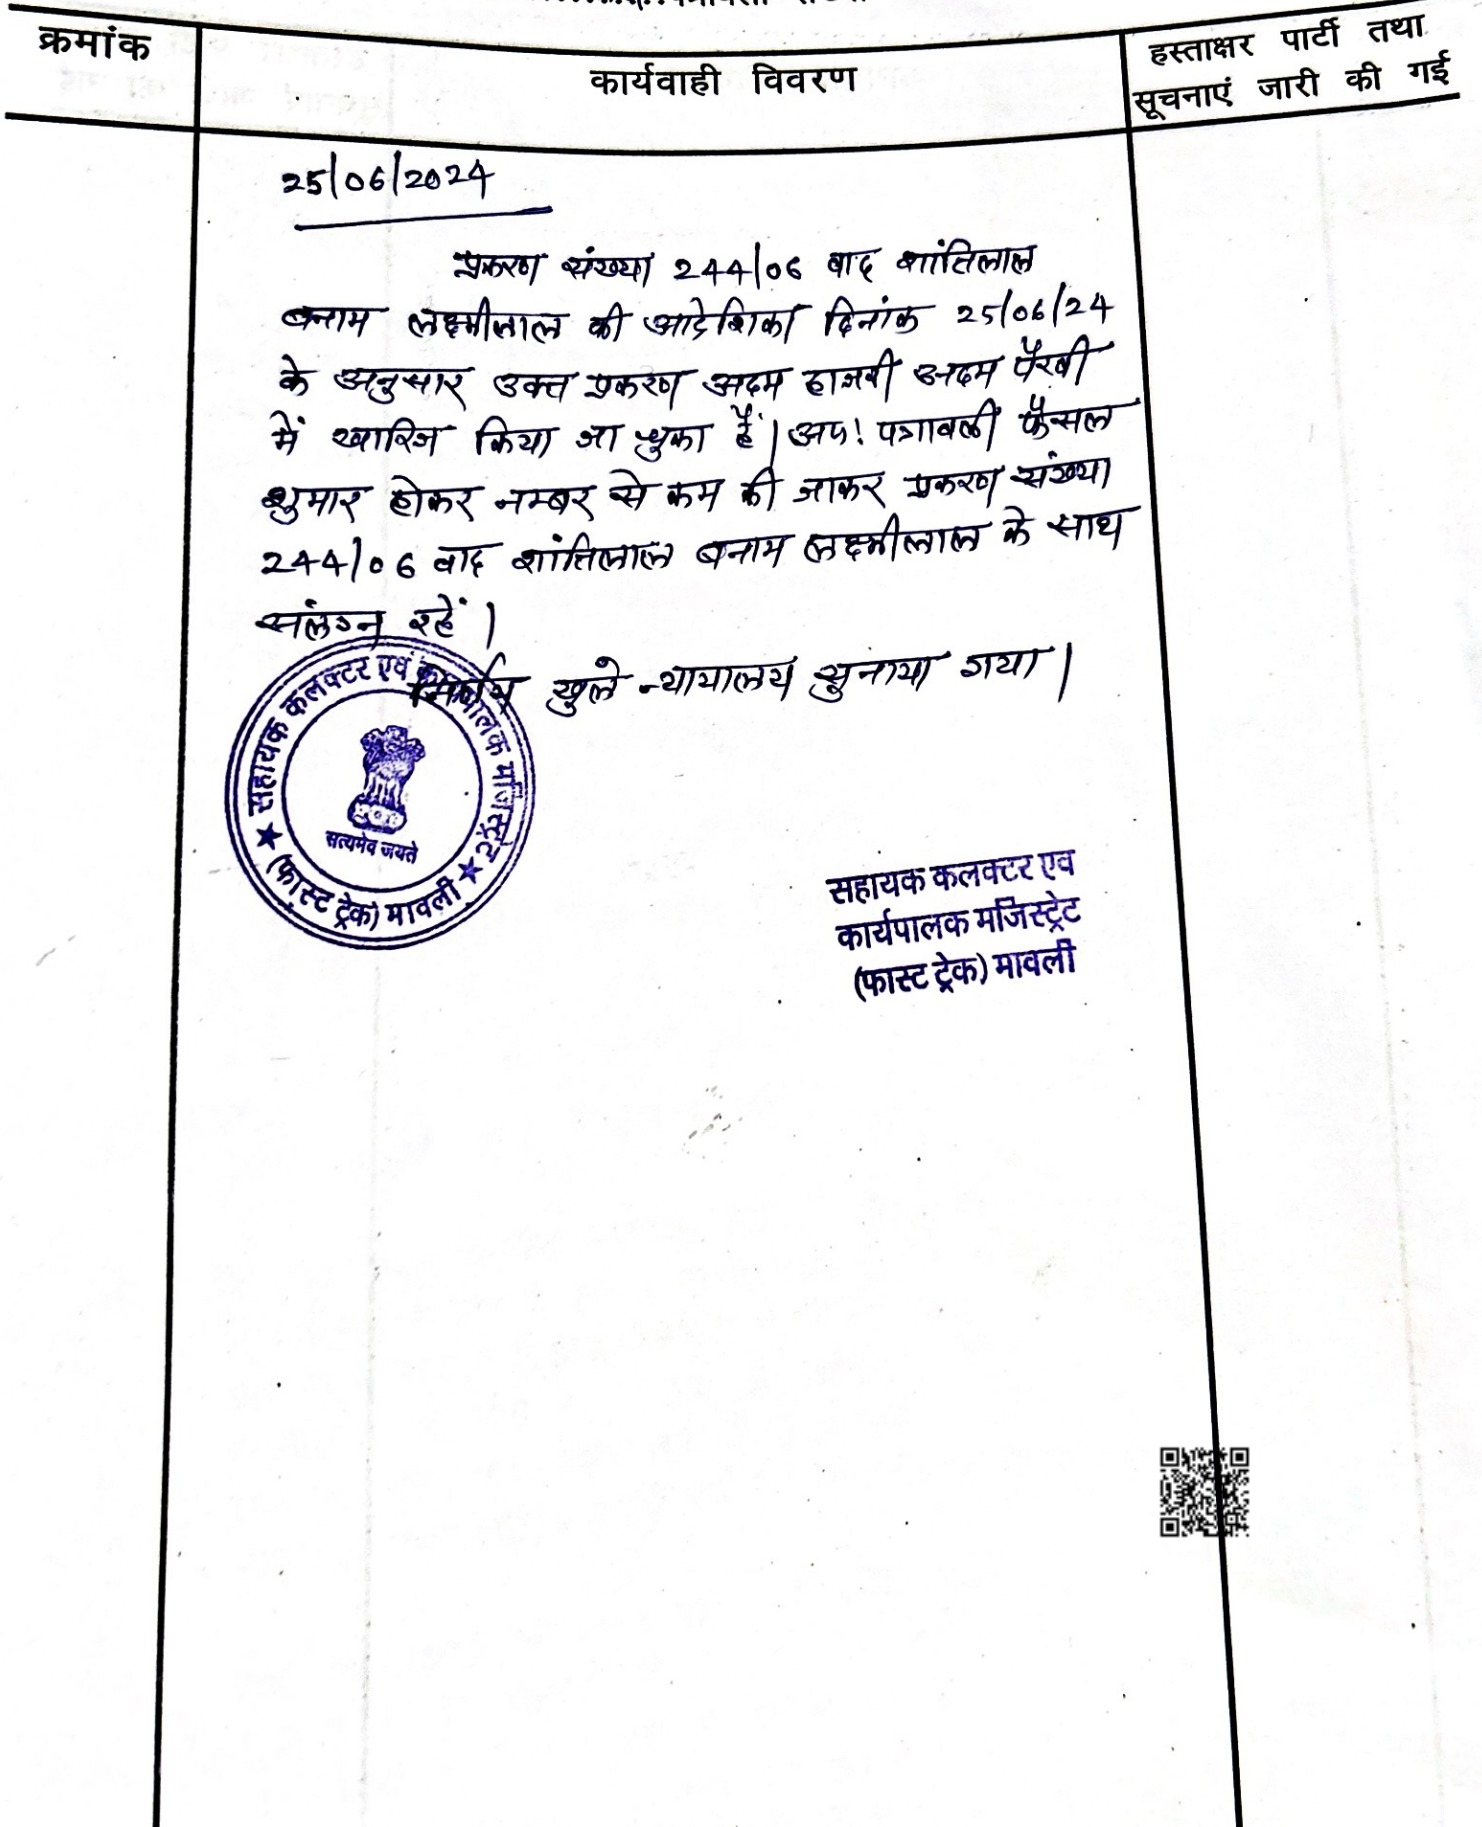 क्रमांक
कार्यवाही विवरण
हस्ताक्षर पार्टी तथा
सूचनाएं जारी की गई
25/06/2024
प्रकरण संख्या 244/06 वाद शांतिलाल
बनाम लक्ष्मीलाल की आदेशिका दिनांक 25/06/24
के अनुसार उक्त प्रकरण अदम हाजरी अदम पैरवी
में खारिज किया जा चुका है। अतः पत्रावली फैसल
शुमार होकर नम्बर से कम की जाकर प्रकरण संख्या
244/06 वाद शांतिलाल बनाम लक्ष्मीलाल के साथ
संलग्न रहें।
निर्णय खुले न्यायालय सुनाया गया।
सहायक कलक्टर एवं कार्यपालक मजिस्ट्रेट
सत्यमेव जयते
(फास्ट ट्रेक) मावली
सहायक कलक्टर एवं
कार्यपालक मजिस्ट्रेट
(फास्ट ट्रेक) मावली